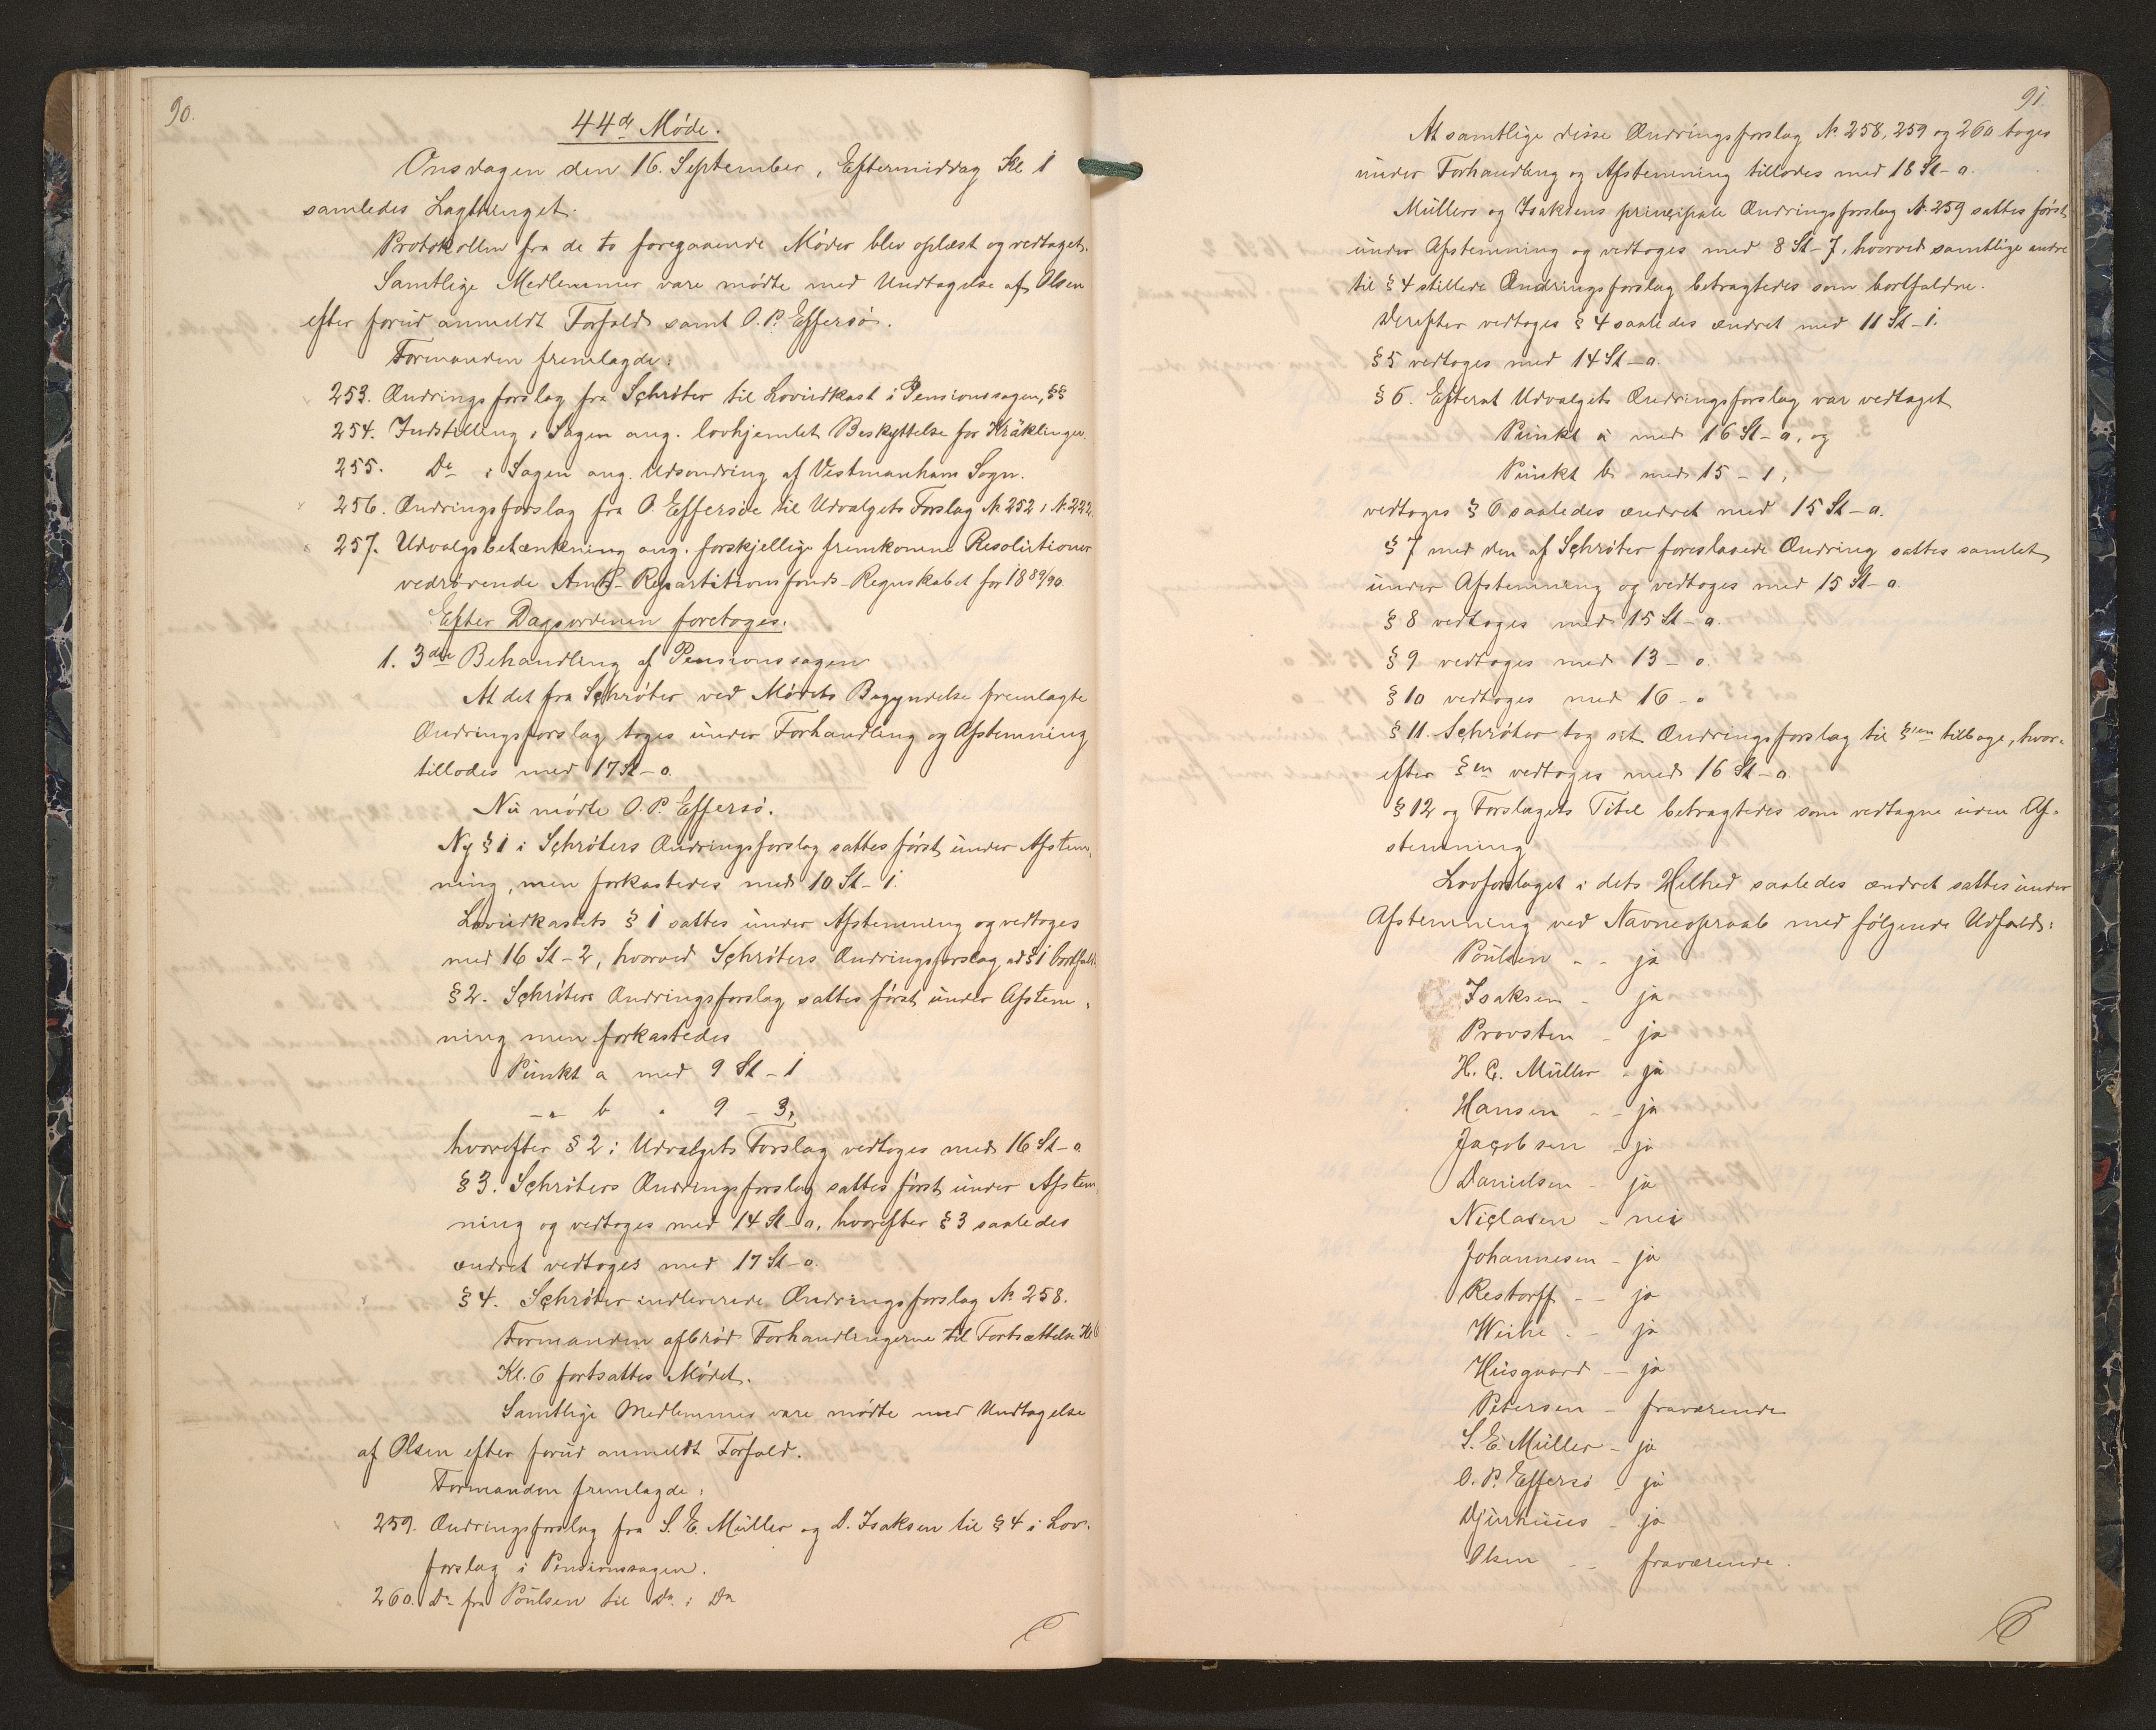 90.
44de Møde.
Onsdagen den 16. September, Eftermiddag Kl 1
samledes Lagtinget.
Protokollen fra de to foregaaende Møder blev oplæst og vedtaget.
Samtlige Medlemmer vare mødte med Undtagelse af Olsen
efter forud anmeldt Forfald samt O. P. Effersø.
Formanden fremlagde:
253. Ændringsforslag fra Schrøter til Lovudkast i Pensionssagen, §§
254. Indstilling i Sagen ang. lovhjemlet Beskyttelse for Kräklinger.
255. Do i Sagen ang. Udsondring af Vestmanhavn Sogn.
256. Ændringsforslag fra O. Effersøe til Udvalgets Forslag № 252 i № 222.
257. Udvalgsbetænkning ang. forskjellige fremkomne Resolutioner
vedrørende Amts-Repartitionsfonds-Regnskabet for 1889/90
Efter Dagsordenen foretoges:
1. 3die Behandling af Pensionssagen
At det fra Schrøter ved Mødets Begyndelse fremlagte
Ændringsforslag toges under Forhandling og Afstemning
tillodes med 17 St - 0.
Nu mødte O. P. Effersø.
Ny § 1 i Schrøters Ændringsforslag sattes først under Afstem-
ning, men forkastedes med 10 St - 1.
Lovudkastets § 1 sattes under Afstemning og vedtoges
med 16 St - 2, hvorved Schrøters Ændringsforslag ad § 1 bortfaldt.
§ 2. Schrøters Ændringsforslag sattes først under Afstem-
ning men forkastedes
Punkt a med 9 St - 1
-"- b " 9 - 3,
hvorefter § 2 i Udvalgets Forslag vedtoges med 16 St - 0
§ 3. Schrøters Ændringsforslag sattes først under Afstem-
ning og vedtoges med 14 St - 0, hvorefter § 3 saaledes
ændret vedtoges med 17 St - 0.
§ 4. Schrøter indleverede Ændringsforslag № 258.
Formanden afbrød Forhandlingerne til Fortsættelse Kl 6
Kl. 6 fortsattes Mødet.
Samtlige Medlemmer vare mødte med Undtagelse
af Olsen efter forud anmeldt Forfald.
Formanden fremlagde:
259. Ændringsforslag fra S. E. Müller og D. Isaksen til § 4 i Lov-
forslag i Pensionssagen.
260. Do fra Poulsen til Do i Do
91.
At samtlige disse Ændringsforslag № 258, 259 og 260 toges
under Forhandling og Afstemning tillodes med 18 St - 0.
Müllers og Isaksens principale Ændringsforslag № 259 sattes først
under Afstemning og vedtoges med 8 St - 7, hvorved samtlige andre
til § 4 stillede Ændringsforslag betragtedes som bortfaldne.
Derefter vedtoges § 4 saaledes ændret med 11 St - 1.
§ 5 vedtoges med 14 St - 0.
§ 6. Efterat Udvalgets Ændringsforslag var vedtaget
Punkt a med 16 St - 0, og
Punkt b med 15 - 1,
vedtoges § 6 saaledes ændret med 15 St - 0.
§ 7 med den af Schrøter foreslaaede Ændring sattes samlet
under Afstemning og vedtoges med 15 St - 0
§ 8 vedtoges med 15 St - 0.
§ 9 vedtoges med 13 - 0.
§ 10 vedtoges med 16 - 0
§ 11. Schrøter tog sit Ændringsforslag til §'en tilbage, hvor-
efter §en vedtoges med 16 St - 0.
§ 12 og Forslagets Titel betragtedes som vedtagne uden Af-
stemning
Lovforslaget i dets Helhed saaledes ændret sattes under
Afstemning ved Navneopraab med følgende Udfald:
Poulsen - - ja
Isaksen - ja
Provsten - ja
H. C. Müller - ja
Hansen - - ja
Jacobsen - ja
Danielsen - ja
Niclasen - nei
Johannesen - ja
Restorff - - ja
Weihe - - ja
Husgaard - - ja
Petersen - fraværende
S. E. Müller - ja
O. P. Effersø ja
Djurhuus - ja
Olsen - - fraværende.